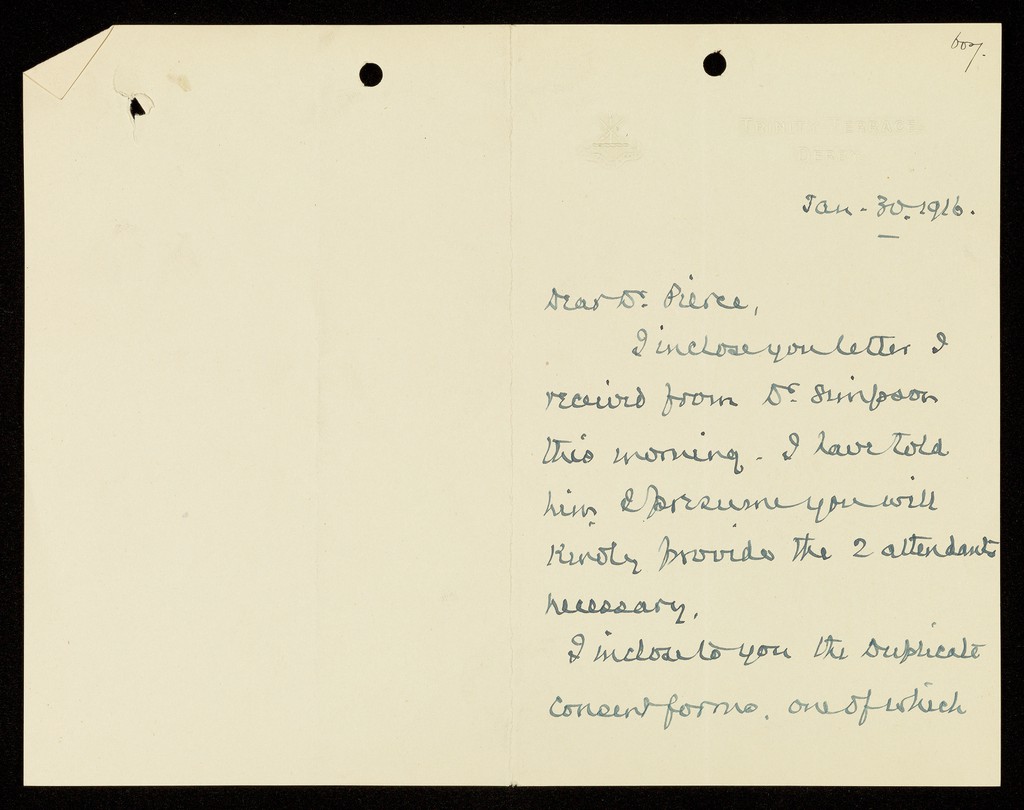 607.
Jan - 30. 1916.
Dear Dr. Pierce,
I inclose you letter I
received from Dr. Simpson
this morning. I have told
him I presume you will
kindly provide the 2 attendants
necessary.
I inclose to you the duplicate
consent forms, one of which